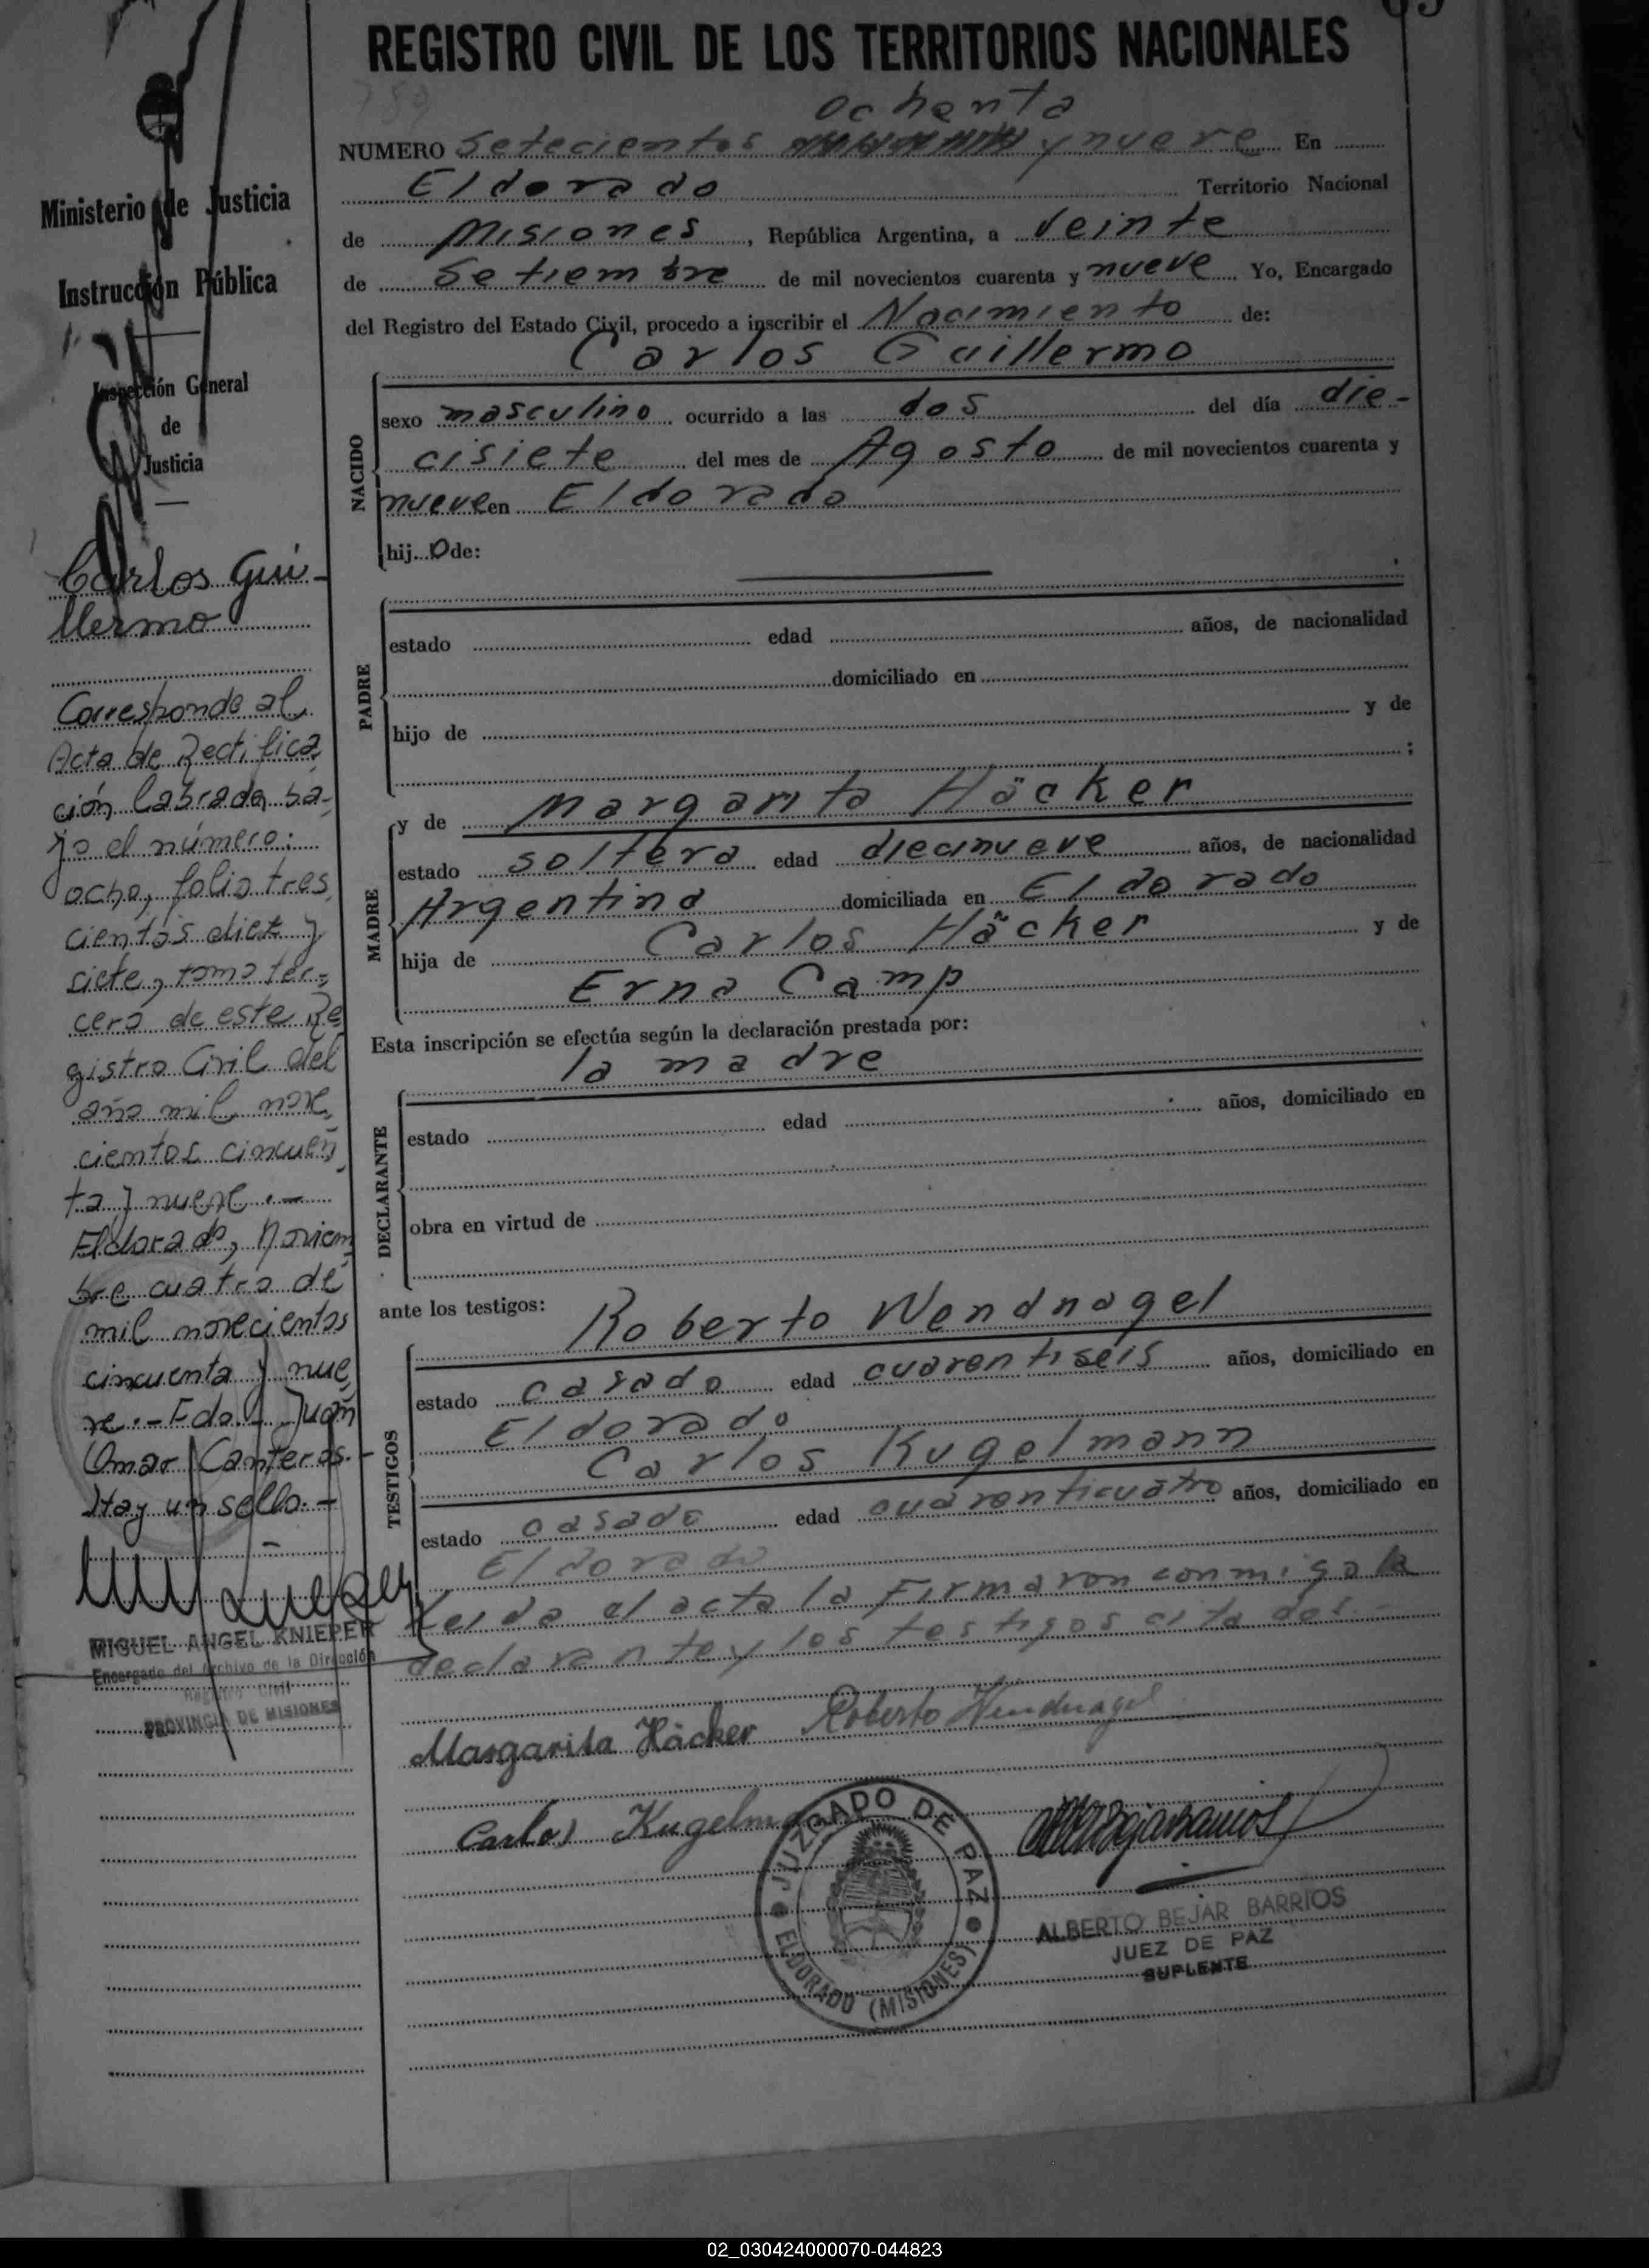 REGISTRO CIVIL DE LOS TERRITORIOS NACIONALES
789
ochenta
NUMERO Setecientos y nueve En
Eldorado Territorio Nacional
de Misiones, República Argentina, a Veinte
de Setiembre de mil novecientos cuarenta y nueve Yo, Encargado
del Registro del Estado Civil, procedo a inscribir el Nacimiento de:
Carlos Guillermo
NACIDO
sexo masculino ocurrido a las dos del día die-
cisiete del mes de Agosto de mil novecientos cuarenta y
nueve en Eldorado
hijo de:
PADRE
estado edad años, de nacionalidad
domiciliado en
hijo de y de
;
MADRE
y de Margarita Häcker
estado soltera edad diecinueve años, de nacionalidad
Argentina domiciliada en Eldorado
hija de Carlos Häcker y de
Erna Camp
Esta inscripción se efectúa según la declaración prestada por:
la madre
DECLARANTE
estado edad años, domiciliado en
obra en virtud de
ante los testigos: Roberto Wendnagel
TESTIGOS
estado casado edad cuarentiseis años, domiciliado en
Eldorado
Carlos Kugelmann
estado casado edad cuarenticuatro años, domiciliado en
Eldorado
Leida el acta la Firmaron conmigo la
declarante y los testigos citados.-
Margarita Häcker Roberto Wendnagel
Carlos
JUZGADO DE PAZ
ELDORADO (MISIONES)
ALBERTO BEJAR BARRIOS
JUEZ DE PAZ
SUPLENTE
Ministerio de Justicia
Instrucción Pública
Inspección General
de
Justicia
Carlos Gui-
llermo
Corresponde al
Acta de Rectifica
ción labrada ba-
jo el número:
ocho, folio tres
cientos diez y
siete, tomo ter-
cero de este Re
gistro Civil del
año mil nove
cientos cincuen
ta y nueve.-
Eldorado, Noviem
bre cuatro de
mil novecientos
cincuenta y nue
ve.- Fdo. Juan
Omar Canteros.-
Hay un sello.-
MIGUEL ANGEL KNIEPER
Encargado del Archivo de la Dirección
Registro Civil
PROVINCIA DE MISIONES
02_030424000070-044823